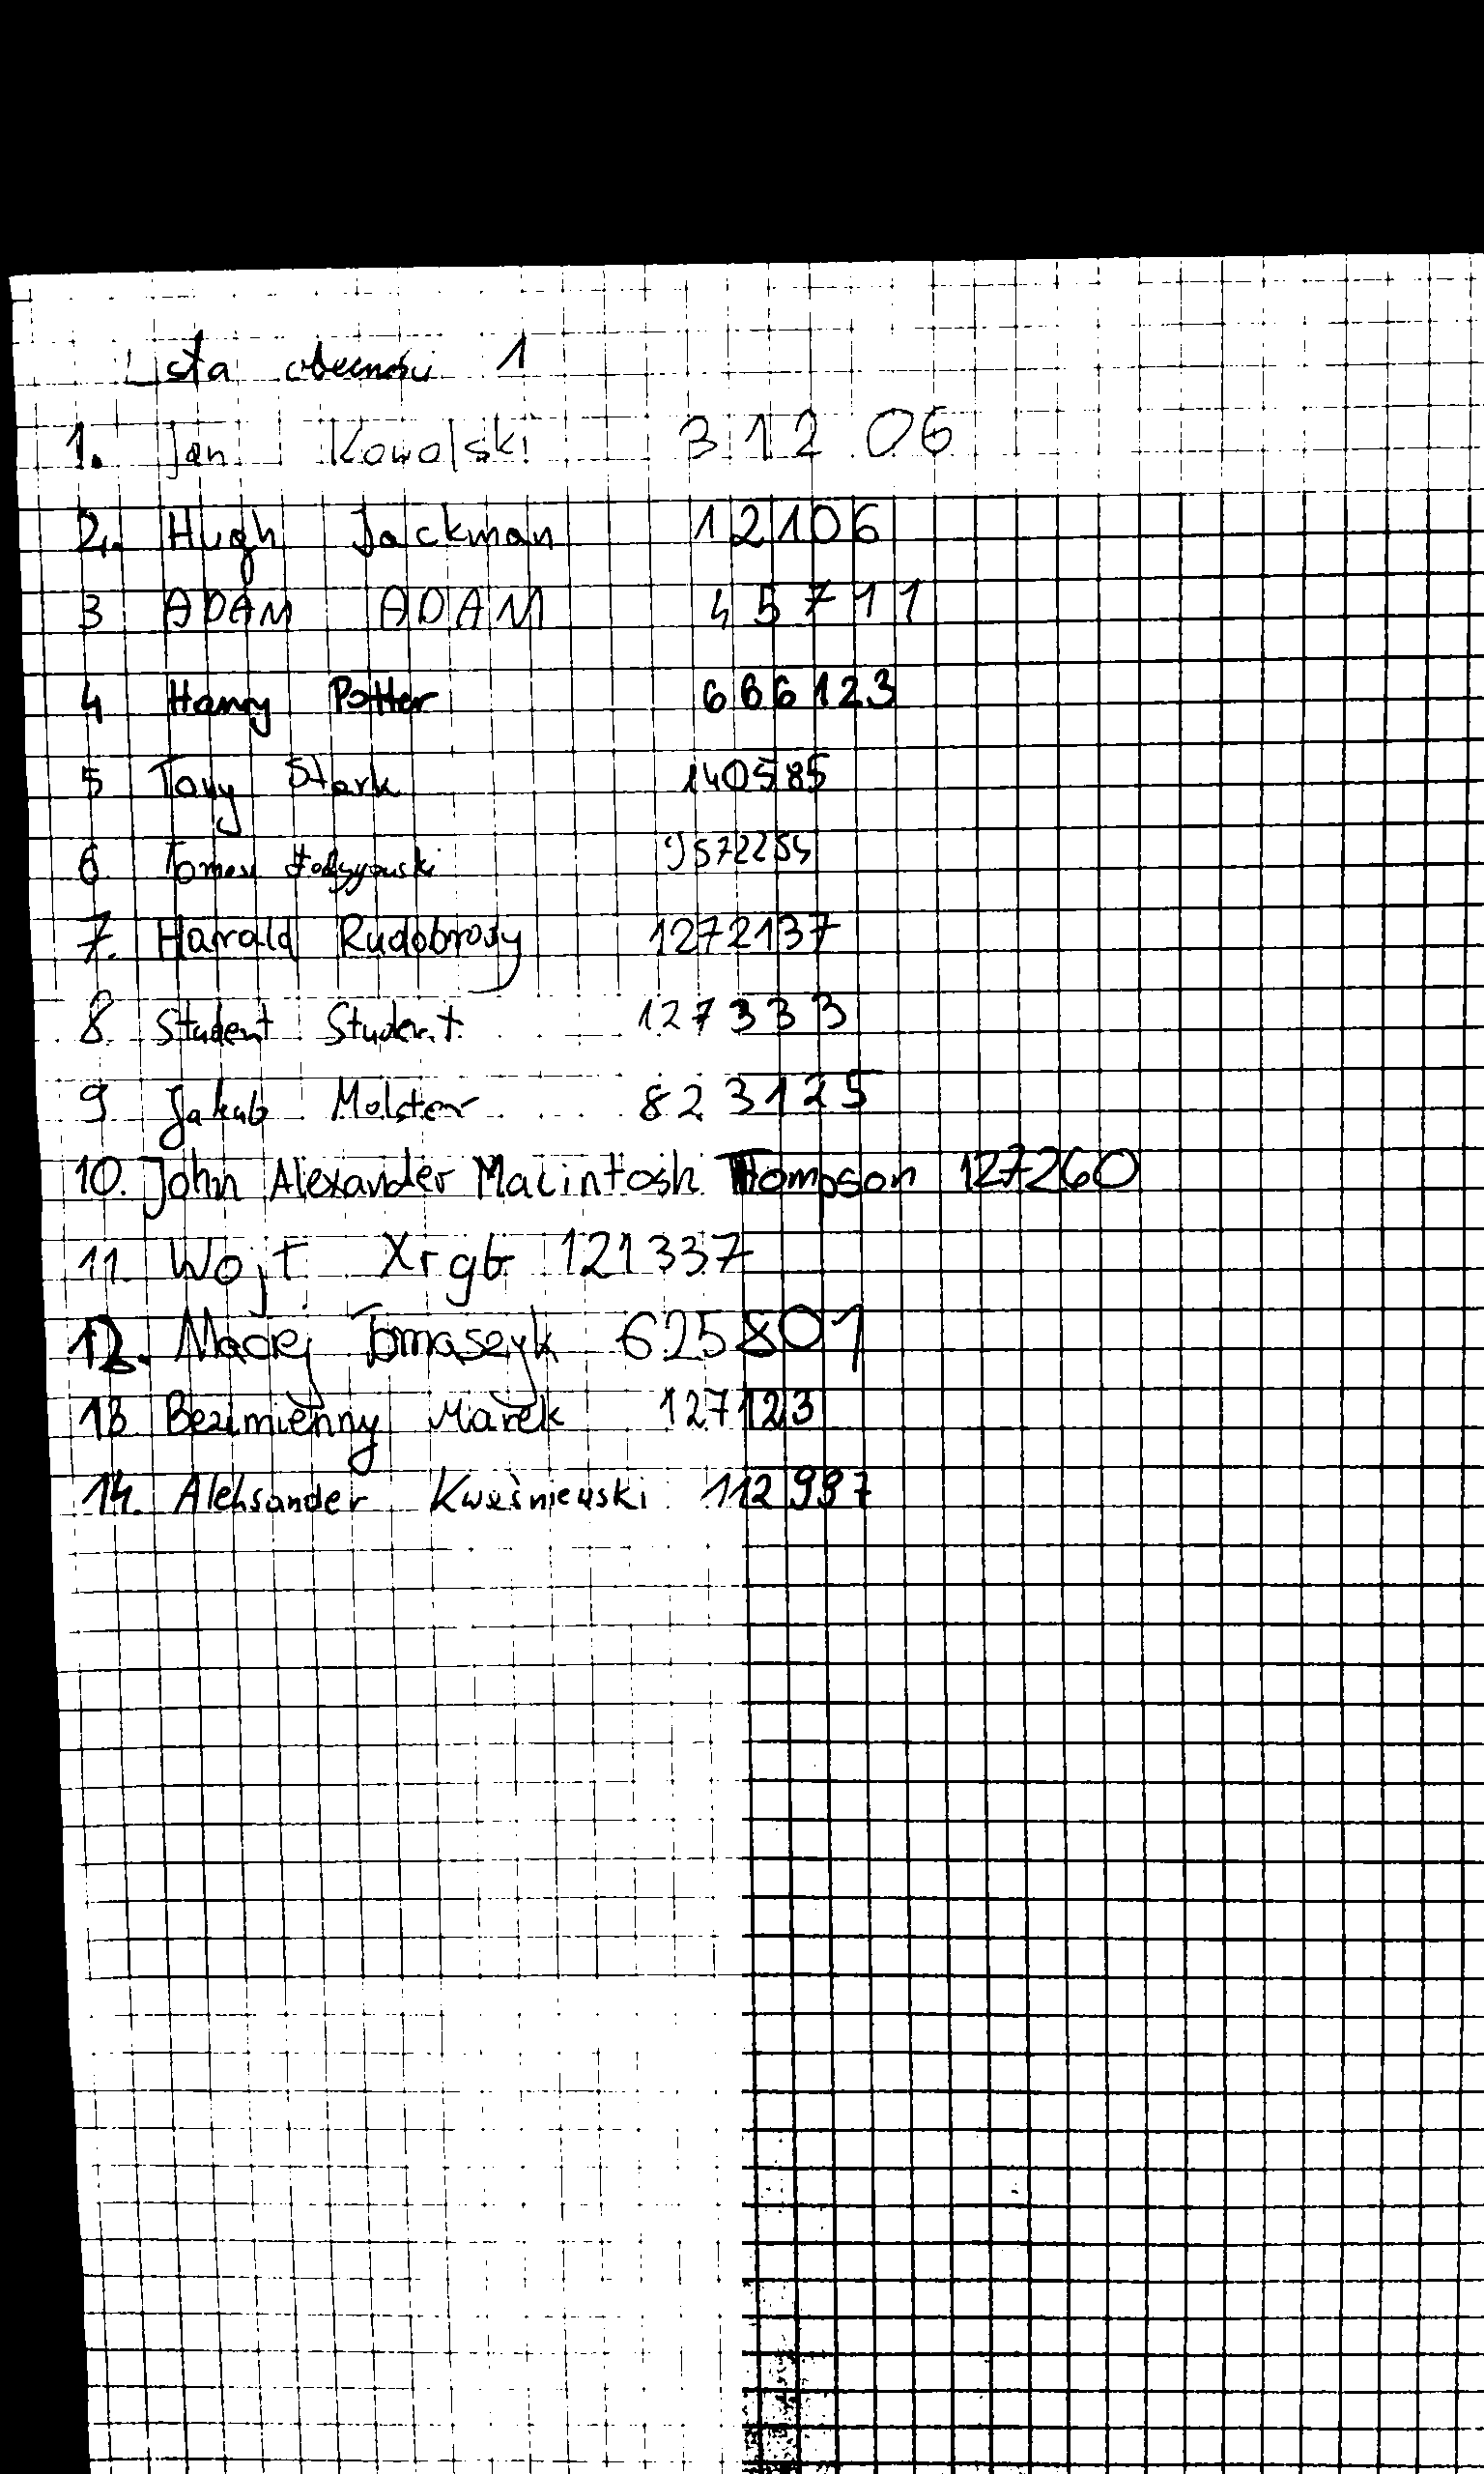 Lista obecności 1
1. Jan Kowalski 31206
2. Hugh Jackman 12106
3 ADAM ADAM 45711
4 Harry Potter 666123
5 Tony Stark 140585
6 9572254
7. Harald Rudobrody 1272137
8 Student Student 127333
9 Jakub Molster 823125
10. John Alexander Macintosh Thompson 127260
11. Wojt Xrgb 121337
12. Maciej Tomaszyk 625801
13 Bezimienny Marek 127123
14. Aleksander Kwaśniewski 112997